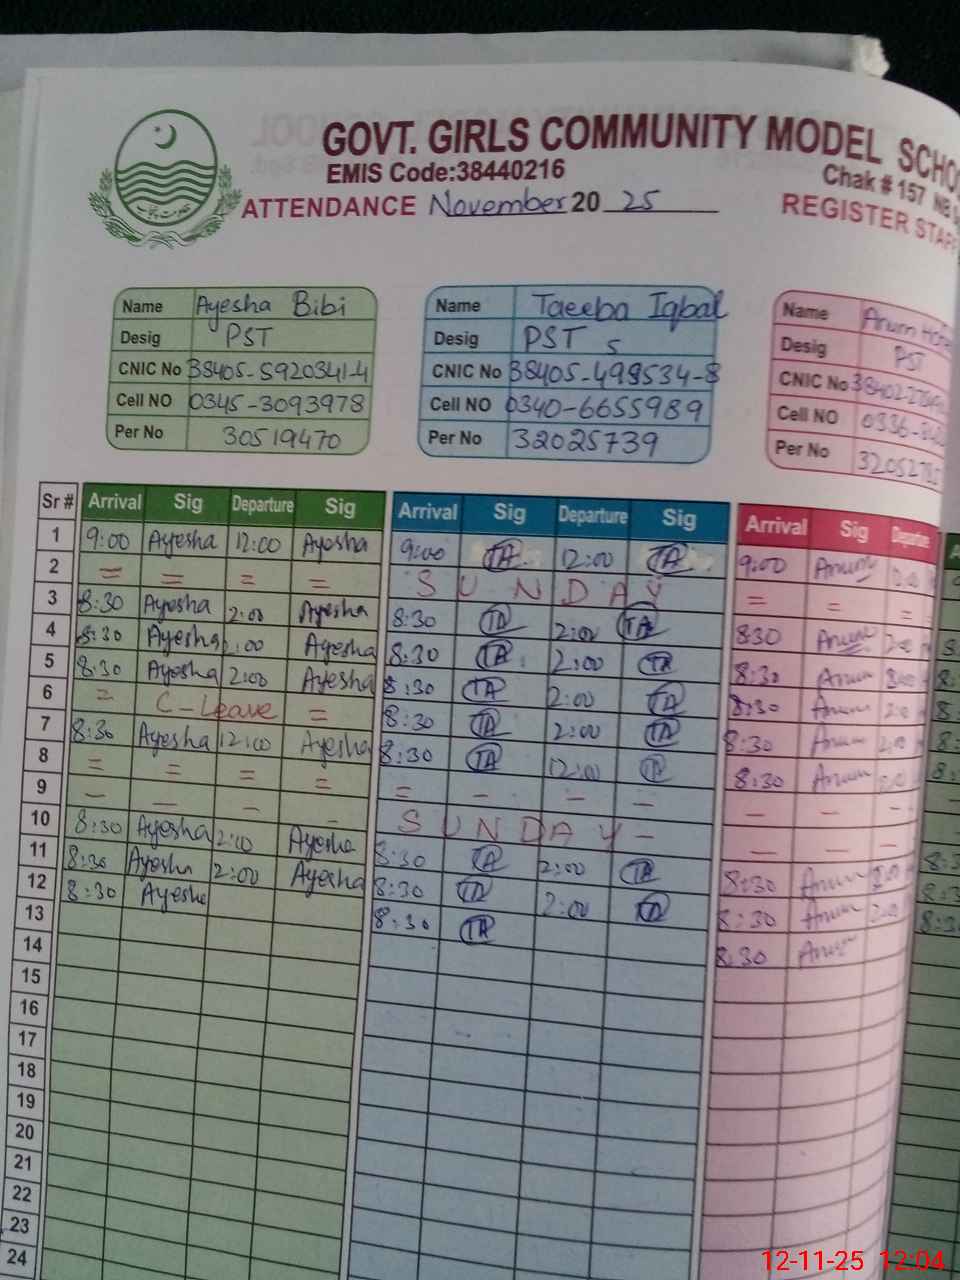 GOVT. GIRLS COMMUNITY MODEL SCHO
EMIS Code:38440216
Chak # 157 NB
ATTENDANCE November 20 25
REGISTER STAFF
Name Ayesha Bibi
Desig PST
CNIC No 38405-5920341-4
Cell NO 0345-3093978
Per No 30519470
Name Taeeba Iqbal
Desig PST
CNIC No
Cell NO 0340-6655989
Per No 32025739
Name Anum
Desig PST
CNIC No
Cell NO 0336-
Per No
Sr # Arrival Sig Departure Sig Arrival Sig Departure Sig Arrival Sig Departure
1 9:00 Ayesha 12:00 Ayesha 9:00 TA 12:00 TA 9:00 Anum
2 = = = = S U N D A Y = = =
3 8:30 Ayesha 2:00 Ayesha 8:30 TA 2:00 TA 8:30 Anum 2:00
4 8:30 Ayesha 2:00 Ayesha 8:30 TA 2:00 TA 8:30 Anum
5 8:30 Ayesha 2:00 Ayesha 8:30 TA 2:00 TA 8:30 Anum 2:00
6 = C-Leave = 8:30 TA 2:00 TA 8:30 Anum 2:00
7 8:30 Ayesha 12:00 Ayesha 8:30 TA 12:00 TA 8:30 Anum
8 = = = = = - - - - - -
9 - - - - S U N D A Y - - - -
10 8:30 Ayesha 2:00 Ayesha 8:30 TA 2:00 TA 8:30 Anum
11 8:30 Ayesha 2:00 Ayesha 8:30 TA 2:00 TA 8:30 Anum 2:00
12 8:30 Ayesha 8:30 TA 8:30 Anum
13
14
15
16
17
18
19
20
21
22
23
24
12-11-25 12:04